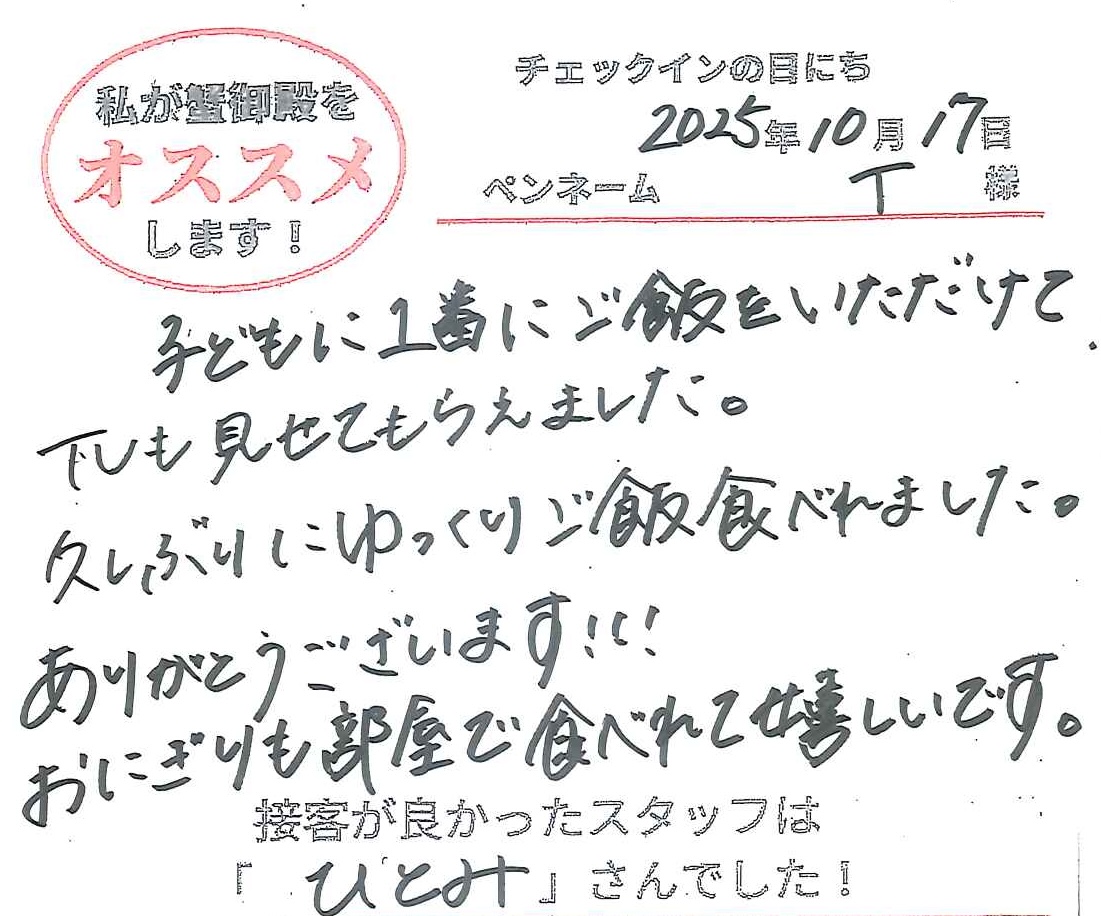 私が蟹御殿を
オススメ
します！
チェックインの日にち
2025年10月17日
ペンネーム T 様
子どもに1番にご飯をいただけて
TVも見せてもらえました。
久しぶりにゆっくりご飯食べれました。
ありがとうございます!!!
おにぎりも部屋で食べれて嬉しいです。
接客が良かったスタッフは
「ひとみ」さんでした！